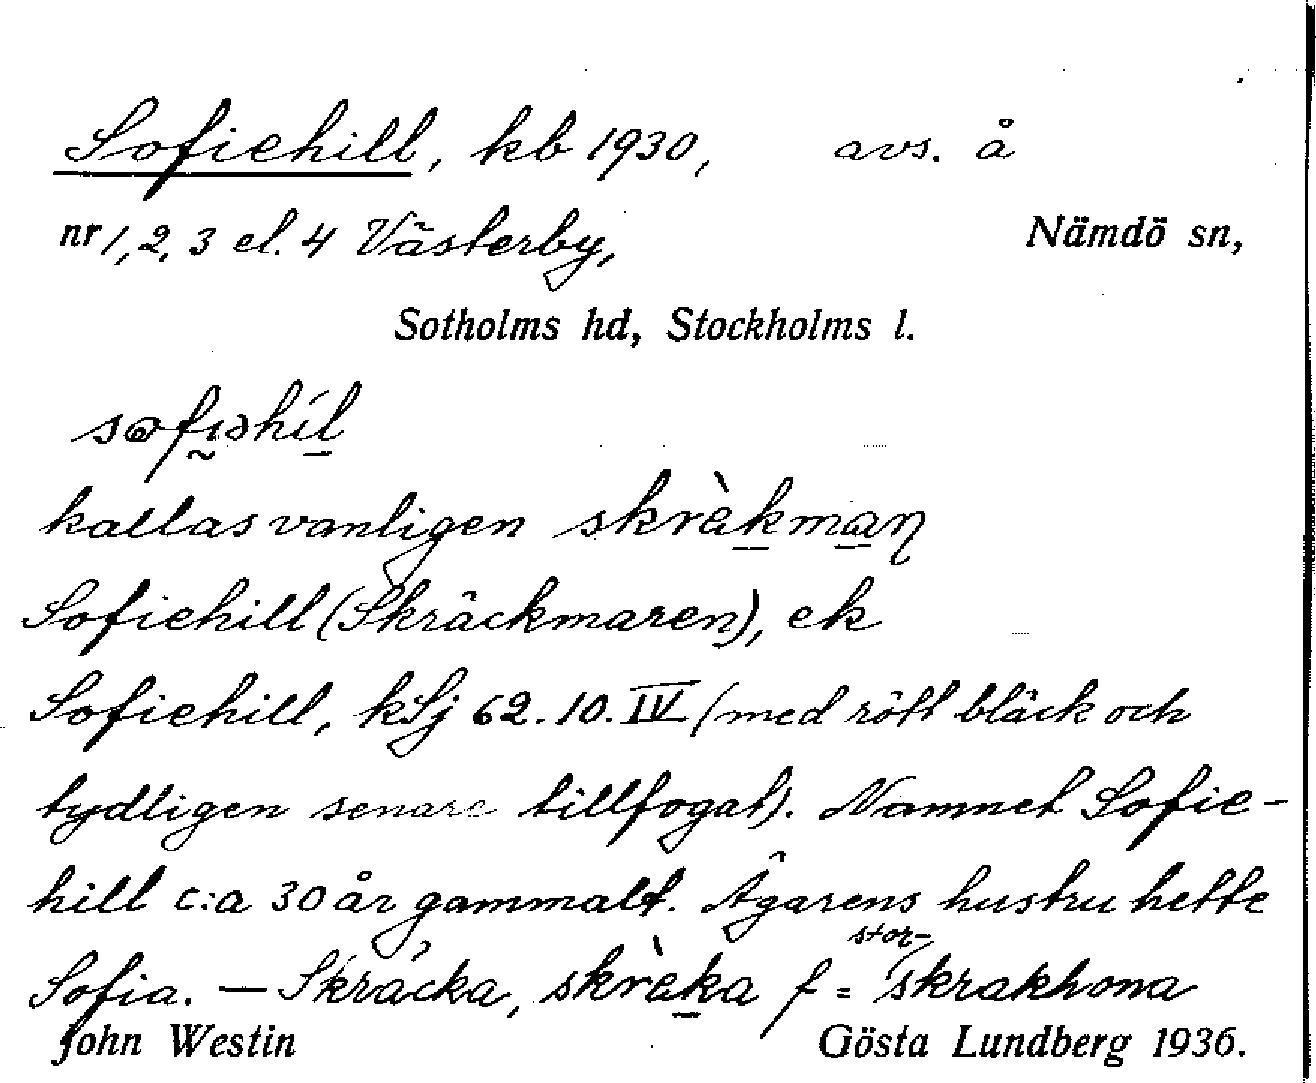 Sofiehill, kb 1930, avs. å
nr 1, 2, 3 el. 4 Västerby, Nämdö sn,
Sotholms hd, Stockholms l.
kallas vanligen
Sofiehill (Skräckmaren), ek
Sofiehill, kSj 62.10.IV (med rött bläck och
tydligen senare tillfogat). Namnet Sofie-
hill c:a 30 år gammalt. Ägarens hustru hette
stor-
Sofia. — Skräcka, skrèka f = skrakhona
John Westin Gösta Lundberg 1936.